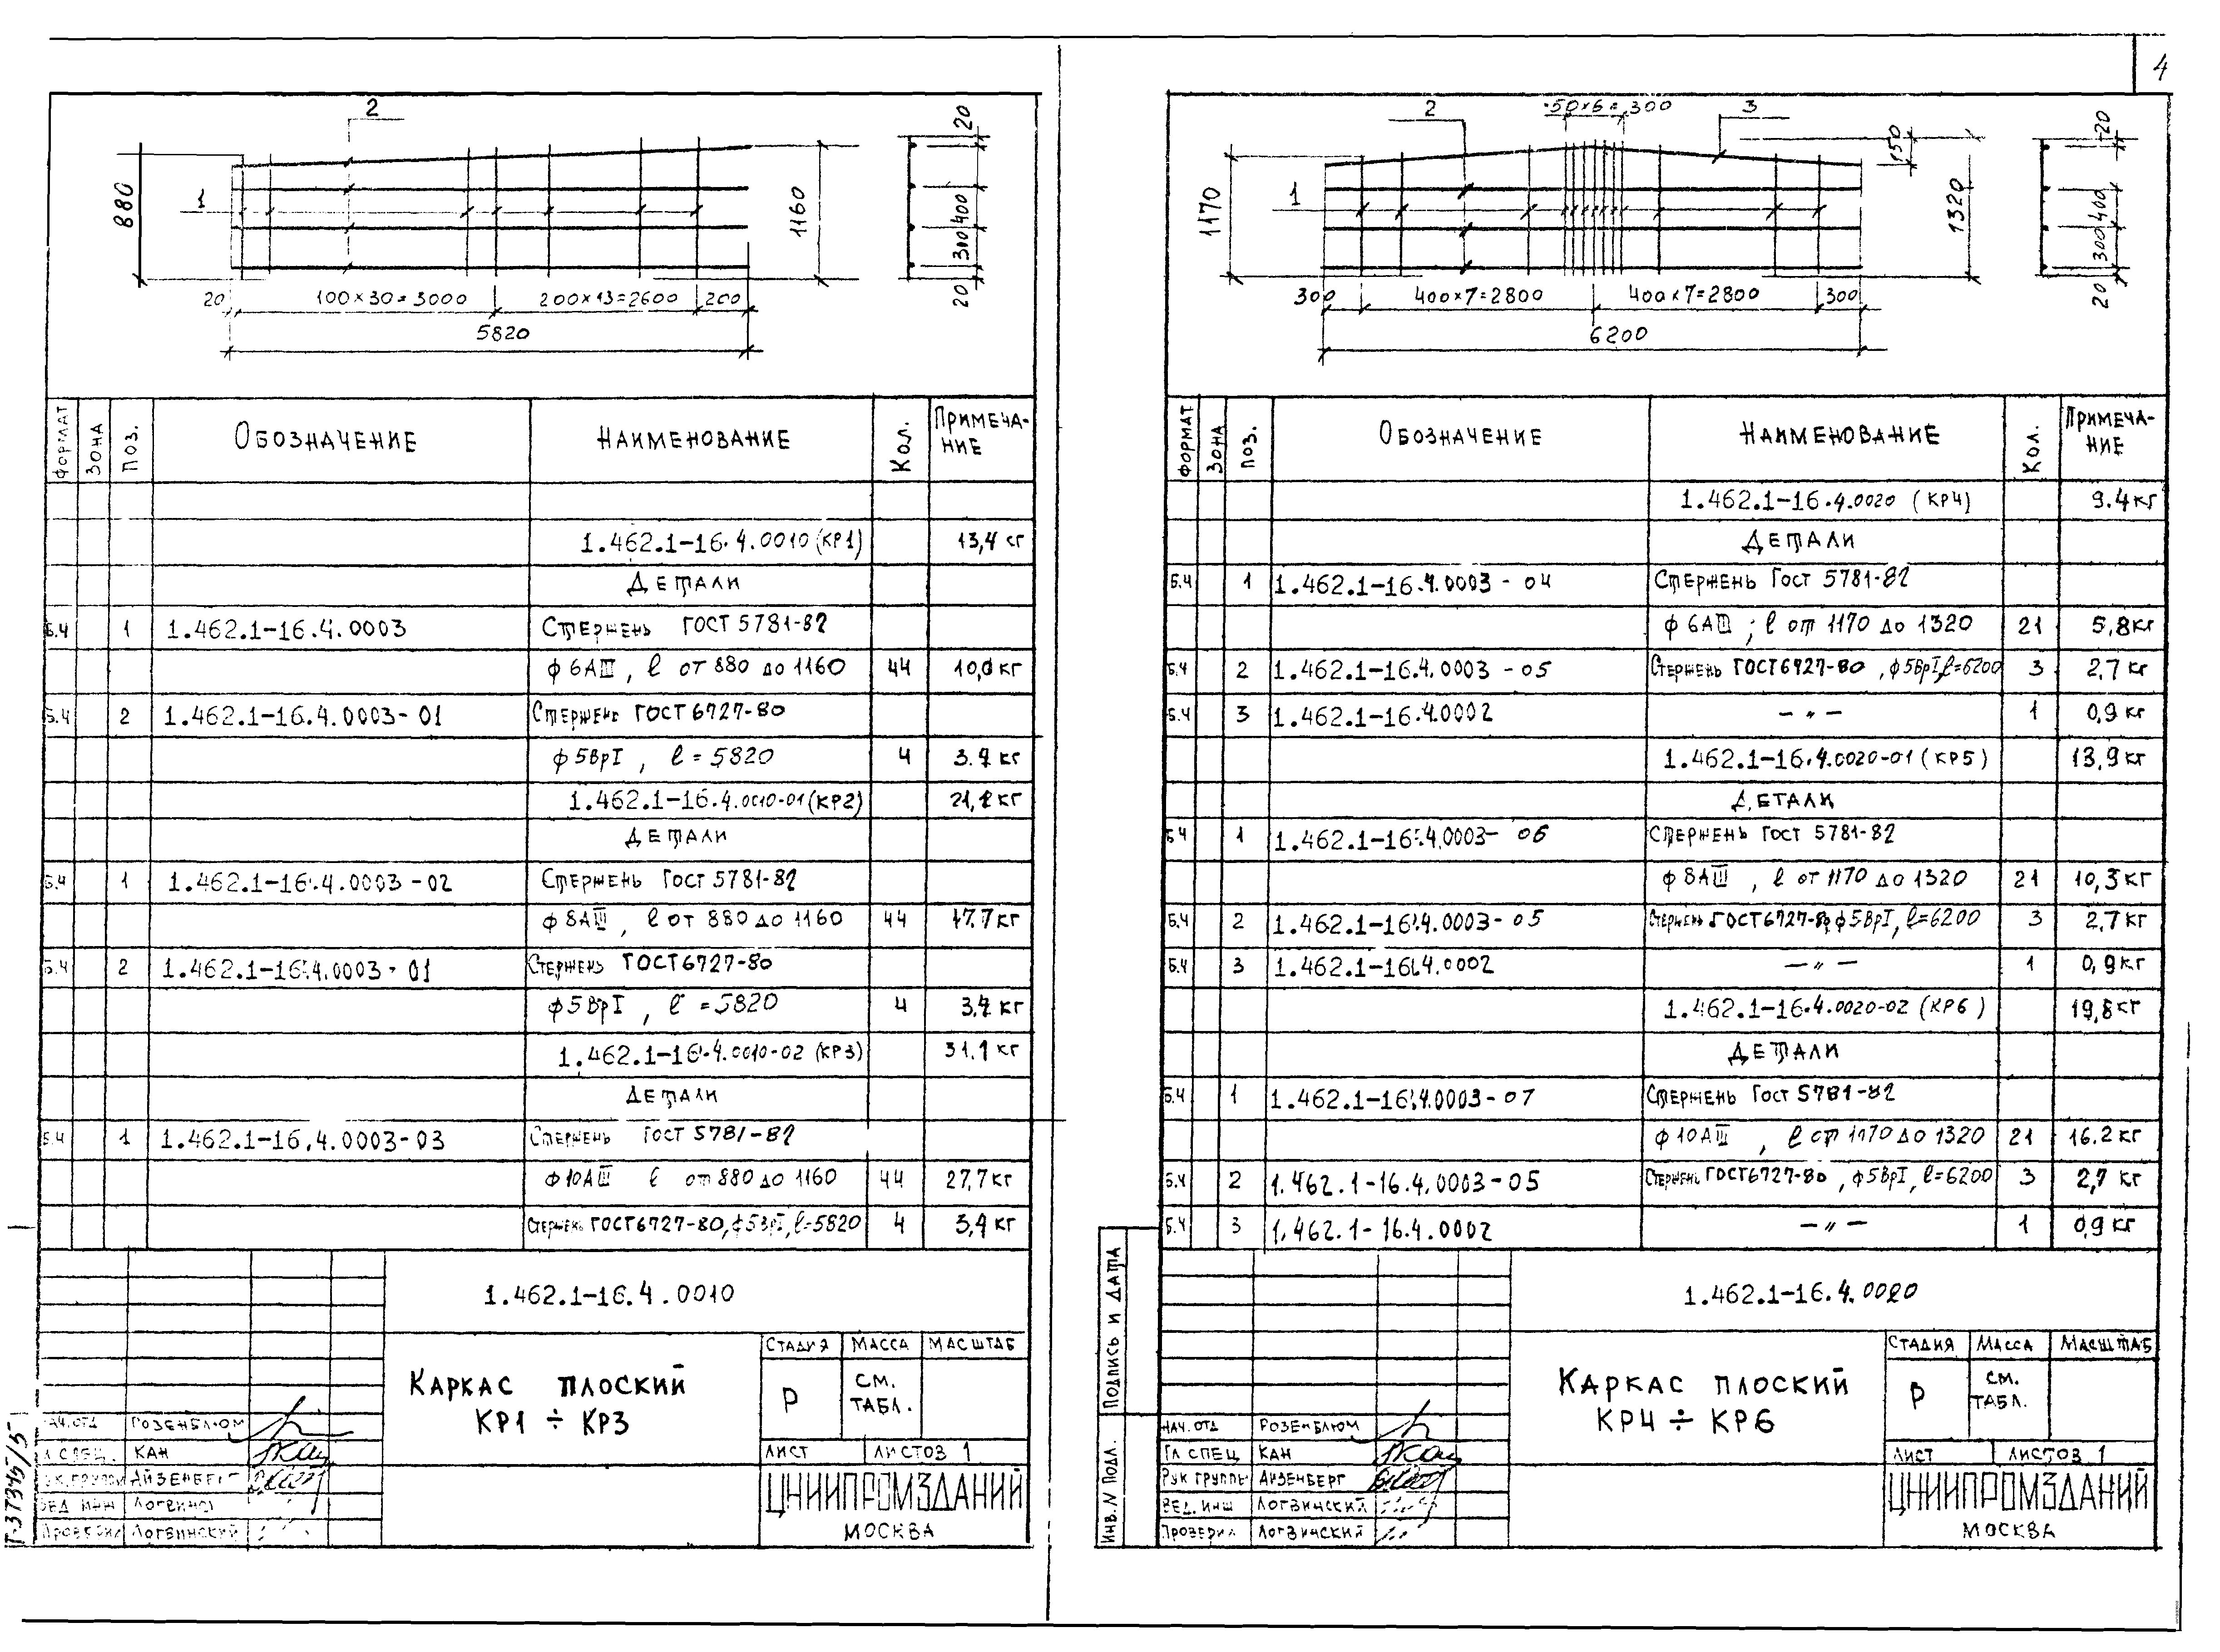 4
2
880
1
1160
20
400
300
20
20
100×30=3000
200×13=2600
200
5820
Формат
Зона
Поз.
Обозначение
Наименование
Кол.
Примечание
1.462.1-16.4.0010 (КР1)
13,4 кг
Детали
Б.Ч 1 1.462.1-16.4.0003 Стержень ГОСТ 5781-82
ф 6АIII, ℓ от 880 до 1160 44 10,0 кг
Б.Ч 2 1.462.1-16.4.0003-01 Стержень ГОСТ 6727-80
ф5ВрI, ℓ = 5820 4 3.4 кг
1.462.1-16.4.0010-01 (КР2)
Детали
Б.Ч 1 1.462.1-16.4.0003-02 Стержень ГОСТ 5781-82
ф 8АIII, ℓ от 880 до 1160 44 17.7 кг
Б.Ч 2 1.462.1-16.4.0003-01 Стержень ГОСТ 6727-80
ф5ВрI, ℓ = 5820 4 3,4 кг
1.462.1-16.4.0010-02 (КР3) 31.1 кг
Детали
Б.Ч 1 1.462.1-16.4.0003-03 Стержень ГОСТ 5781-82
ф10АIII ℓ от 880 до 1160 44 27,7 кг
Стержень ГОСТ 6727-80, ф5ВрI, ℓ=5820 4 3,4 кг
1.462.1-16.4.0010
Каркас плоский
КР1 ÷ КР3
Стадия Масса Масштаб
Р см. табл.
Лист Листов 1
ЦНИИПРОМЗДАНИЙ
Москва
Нач.отд Розенблюм
Гл.спец. Кан
Рук.группы Айзенберг
Вед. инж Логвинский
Проверил Логвинский
Т-3
2
50×6=300
3
150
1170
1
1320
20
400
300
20
300
400×7=2800
400×7=2800
300
6200
Формат
Зона
Поз.
Обозначение
Наименование
Кол.
Примечание
1.462.1-16.4.0020 (КР4) 9.4 кг
Детали
Б.Ч 1 1.462.1-16.4.0003-04 Стержень ГОСТ 5781-82
ф 6АIII; ℓ от 1170 до 1320 21 5,8 кг
Б.Ч 2 1.462.1-16.4.0003-05 Стержень ГОСТ 6727-80, ф5ВрI, ℓ=6200 3 2,7 кг
Б.Ч 3 1.462.1-16.4.0002 — " — 1 0,9 кг
1.462.1-16.4.0020-01 (КР5) 13,9 кг
Детали
Б.Ч 1 1.462.1-16.4.0003-06 Стержень ГОСТ 5781-82
ф 8АIII, ℓ от 1170 до 1320 21 10,3 кг
Б.Ч 2 1.462.1-16.4.0003-05 Стержень ГОСТ 6727-80, ф5ВрI, ℓ=6200 3 2,7 кг
Б.Ч 3 1.462.1-16.4.0002 — " — 1 0,9 кг
1.462.1-16.4.0020-02 (КР6) 19,8 кг
Детали
Б.Ч 1 1.462.1-16.4.0003-07 Стержень ГОСТ 5781-82
ф10АIII, ℓ от 1170 до 1320 21 16.2 кг
Б.Ч 2 1.462.1-16.4.0003-05 Стержень ГОСТ 6727-80, ф5ВрI, ℓ=6200 3 2,7 кг
Б.Ч 3 1.462.1-16.4.0002 — " — 1 0,9 кг
1.462.1-16.4.0020
Каркас плоский
КР4 ÷ КР6
Стадия Масса Масштаб
Р см. табл.
Лист Листов 1
ЦНИИПРОМЗДАНИЙ
Москва
Нач.отд Розенблюм
Гл спец Кан
Рук группы Айзенберг
Вед. инж Логвинский
Проверил Логвинский
Подпись и дата
Инв. N подл.